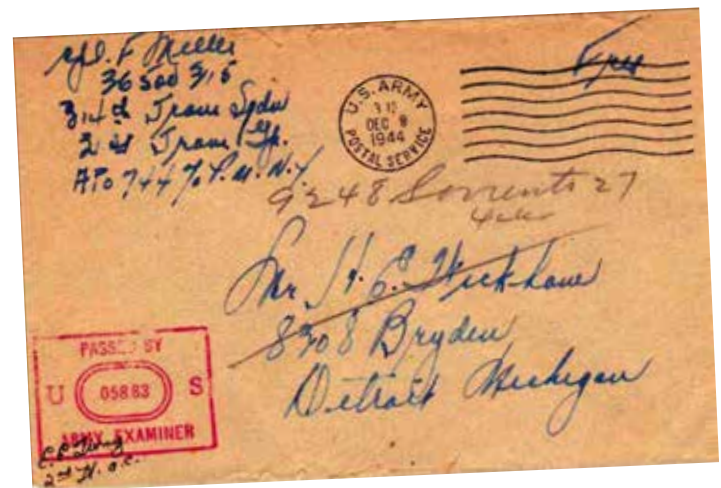 Cpl. F Miller
36500315
314th Tran Sqdn
2nd Tran Gp.
APO 744 % P.M. N.Y
Free
U.S. ARMY
DEC 8
1944
POSTAL SERVICE
9248 Sorrento 27
Mr. H. E. Wickham
8308 Bryden
Detroit Michigan
PASSED BY
U 05883 S
ARMY EXAMINER
2nd